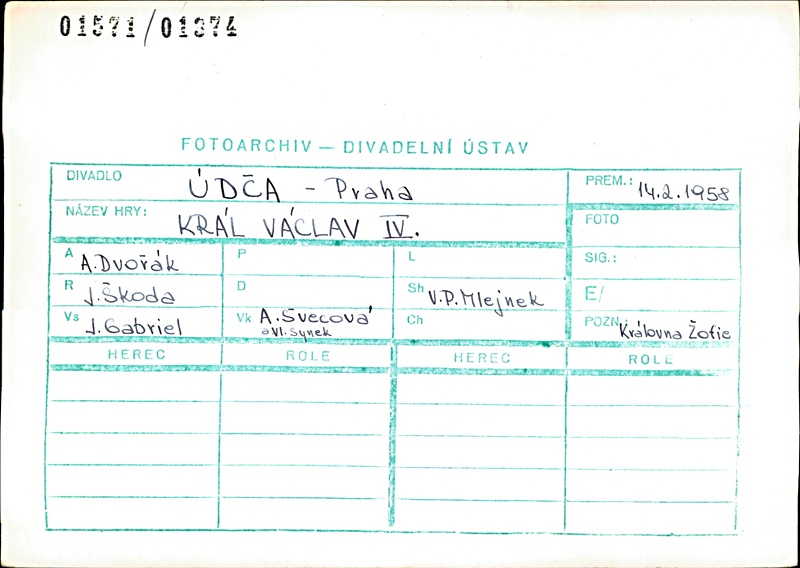 01571/01374
FOTOARCHIV — DIVADELNÍ ÚSTAV
DIVADLO ÚDČA - Praha PREM.: 14.2.1958
NÁZEV HRY: KRÁL VÁCLAV IV. FOTO
A A.Dvořák P L SIG.:
R J.Škoda D Sh V.P.Mlejnek E/
Vs J.Gabriel Vk A.Švecová Ch POZN.: Královna Žofie
a Vl. Synek
HEREC ROLE HEREC ROLE